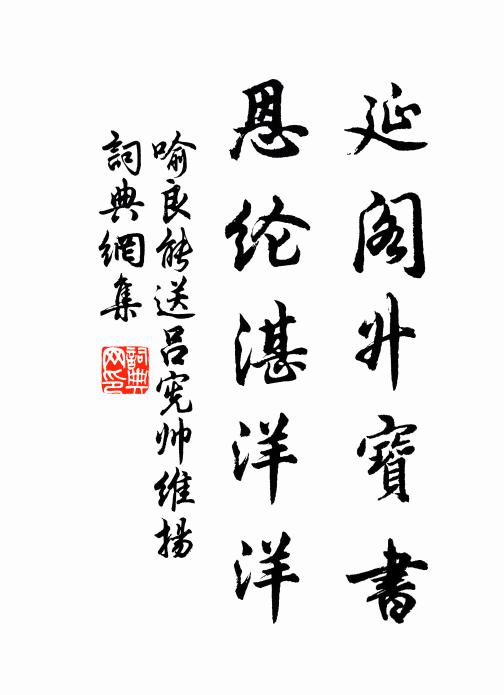 延阁升寶書
恩纶湛洋洋
喻良能送吕宪帅维揚
詞典網集
詞典网印